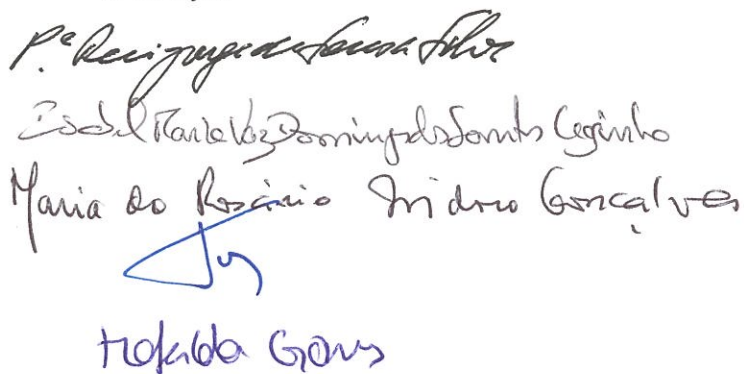 P.e Rui Jorge de Sousa Silva
Isabel Maria Vaz Domingos dos Santos
Maria do Rosário Isidro Gonçalves
Mafalda Gomes